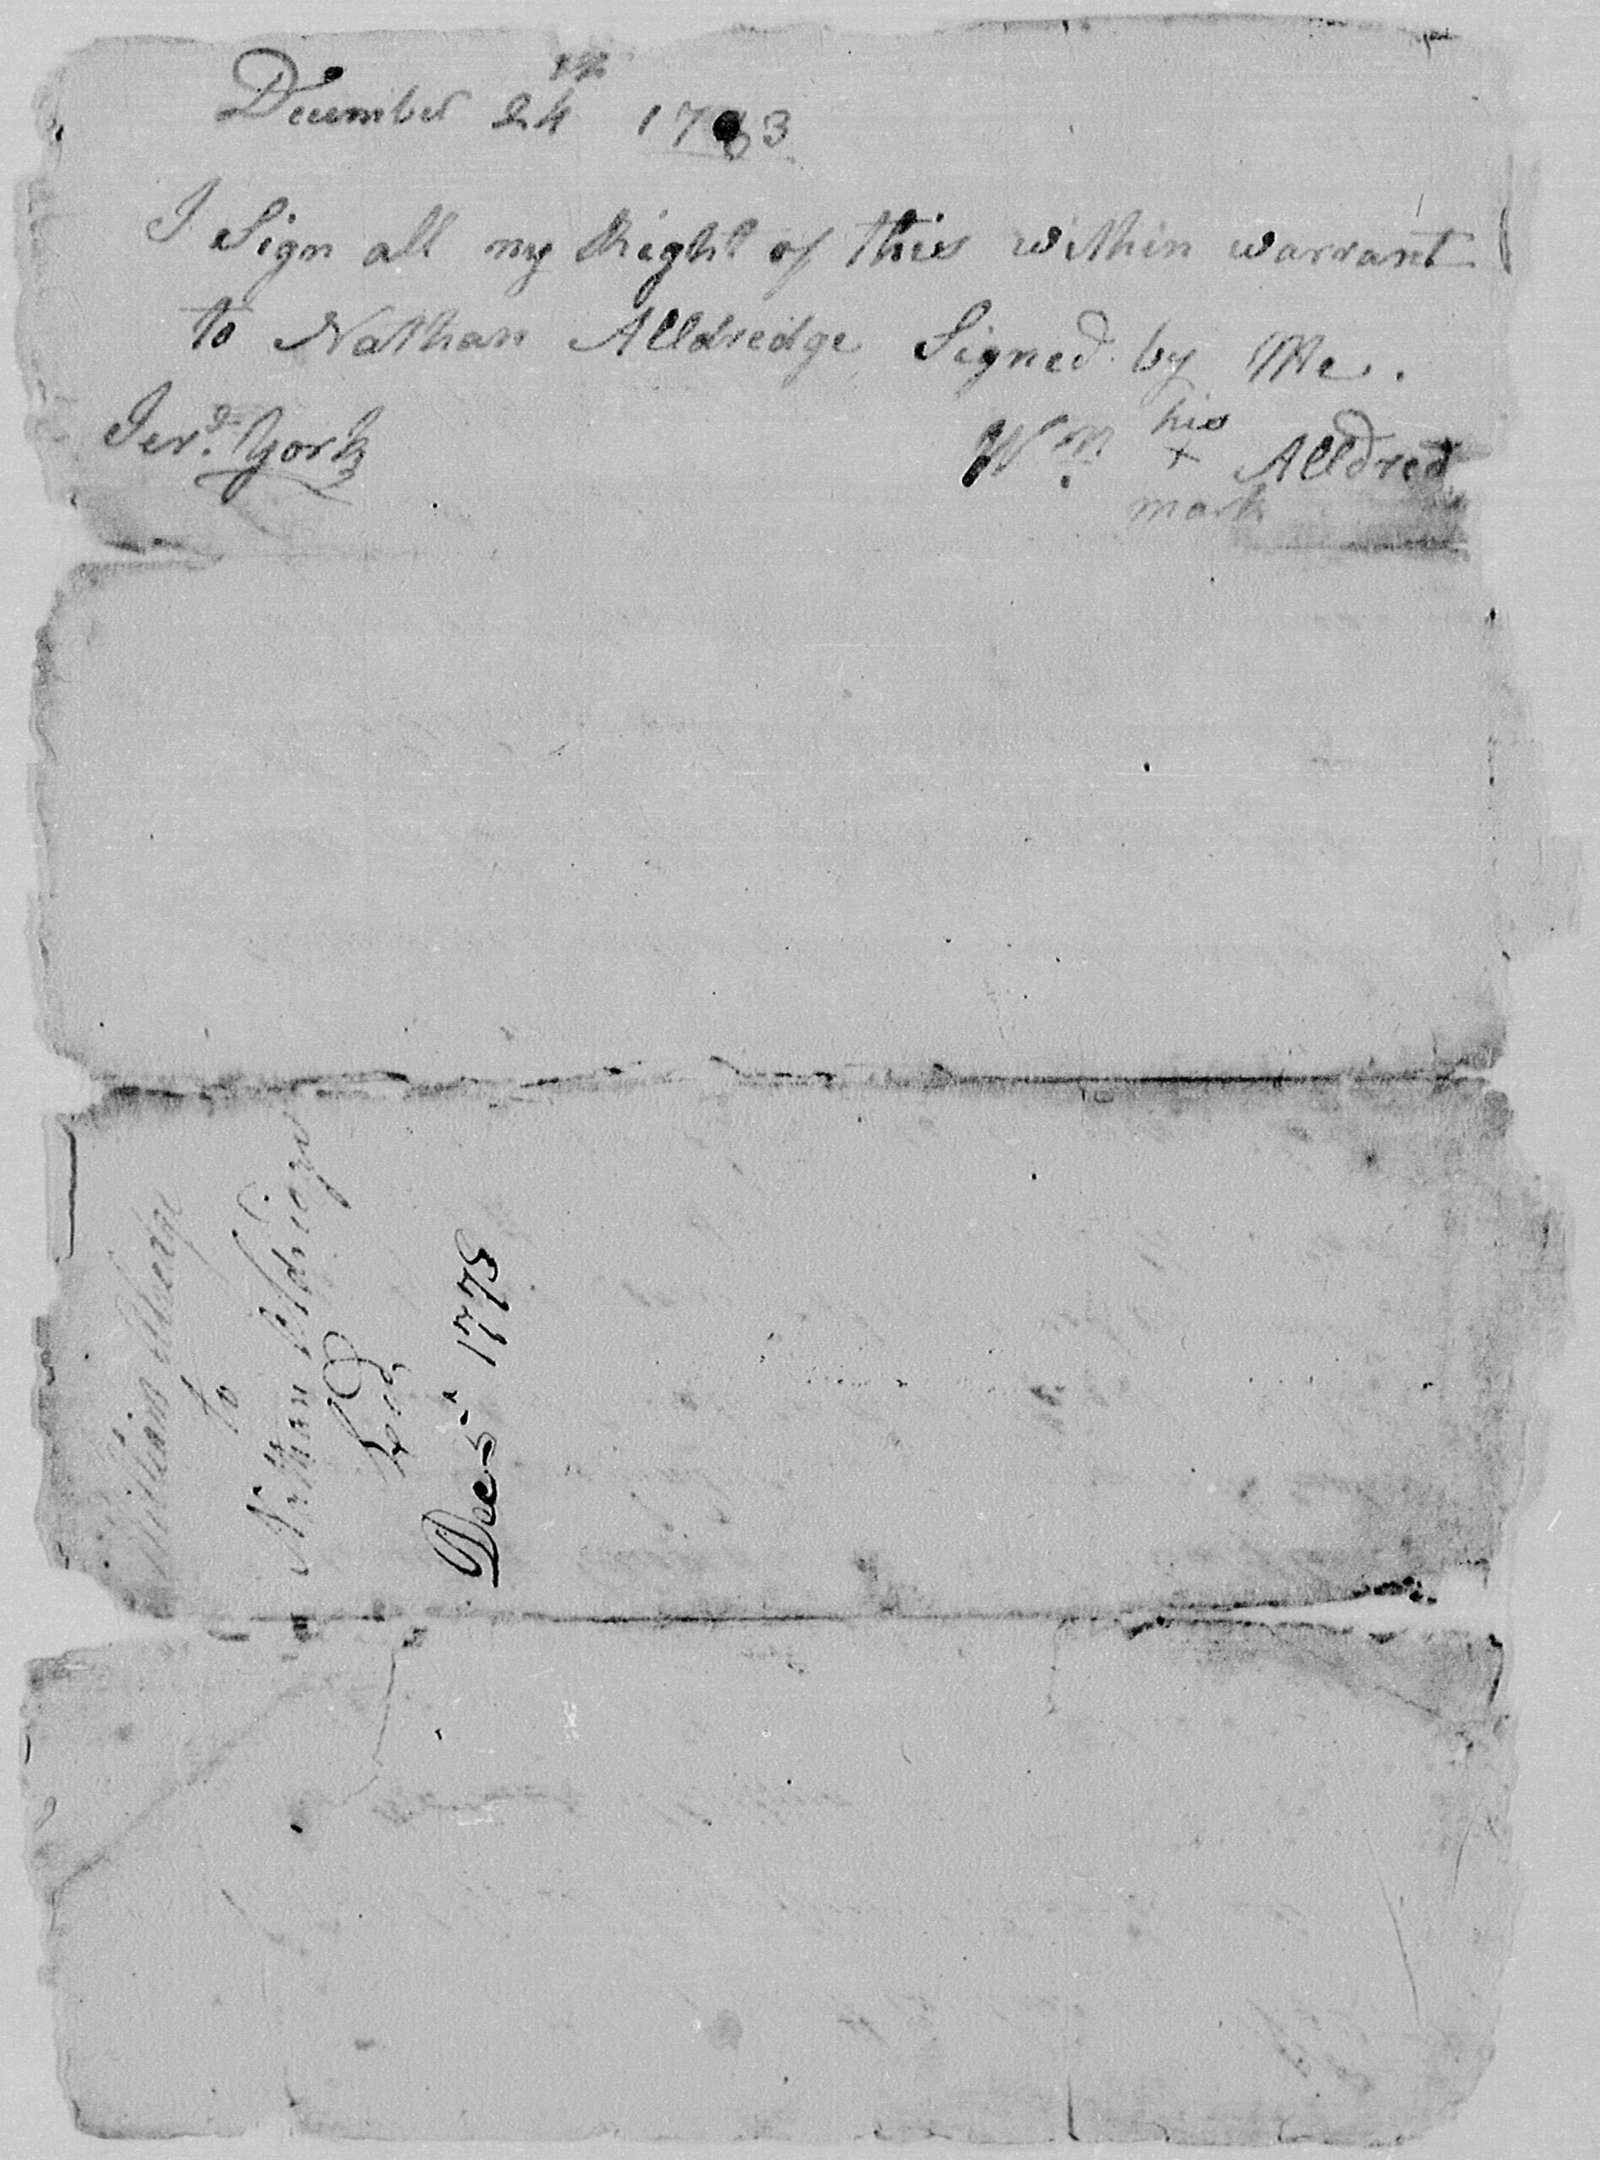 December 24th 1783
I Sign all my Right of this within warrant
to Nathan Alldredge Signed by Me.
Jerd. York
Wm. his x mark Alldred
William Alledge
to
Nathan Aldriege
Dec 5th 1778